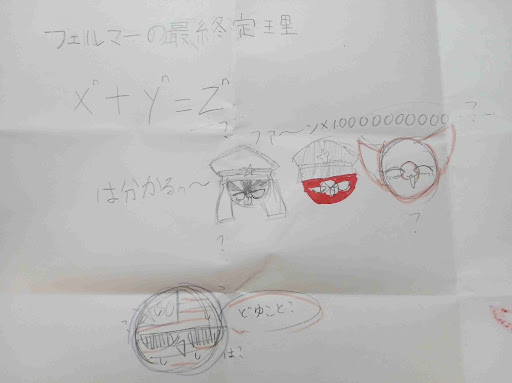 フェルマーの最終定理
xⁿ+yⁿ=zⁿ
?
ファ〜ン×10000000000
?
は分かる
?
?
どゆこと?
は?